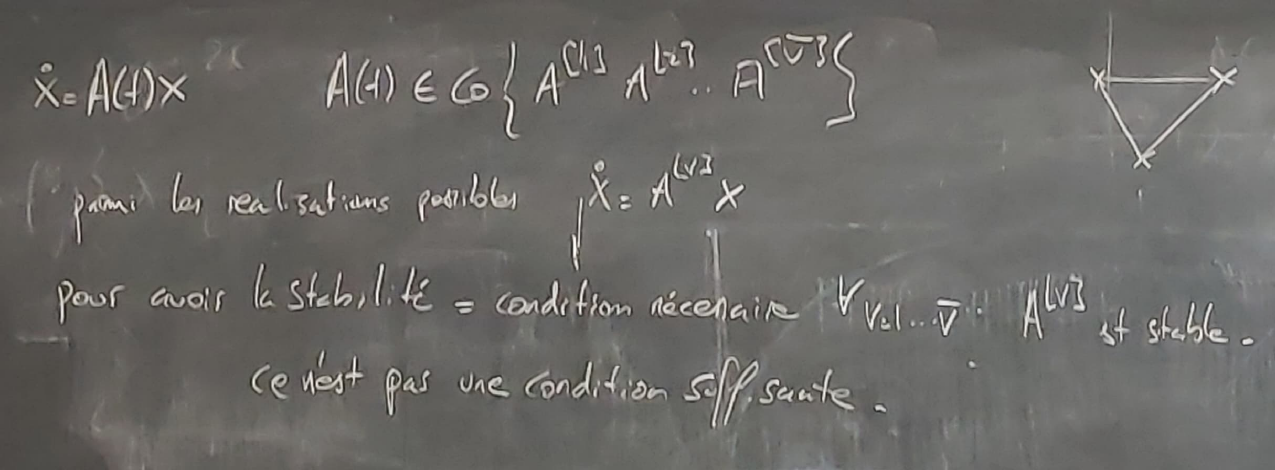 ẋ = A(t)x A(t) ∈ Co { A^[1] A^[2] .. A^[v̄] }
parmi les realisations possibles ẋ = A^[v] x
pour avoir la stabilité = condition nécessaire ∀ v=1...v̄ A^[v] est stable.
Ce n'est pas une condition suffisante.